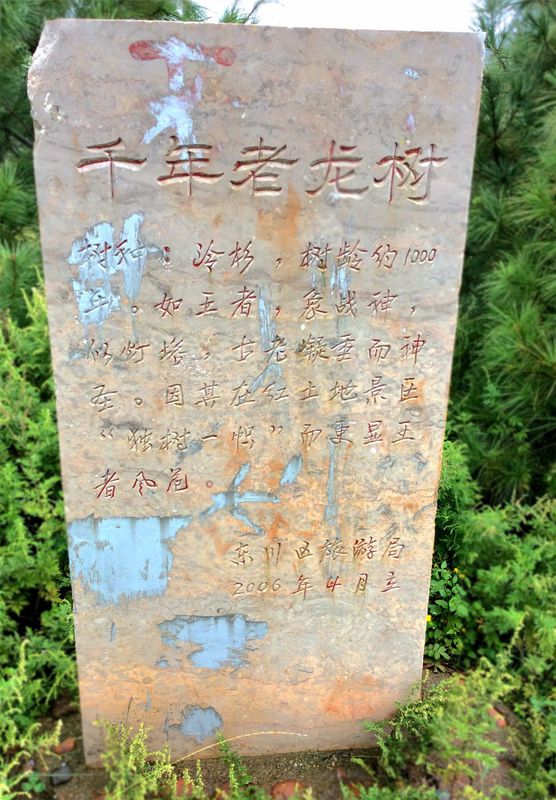 千年老龙树
树种：冷杉，树龄约1000
年。如王者，象战神，
似灯塔，古老凝重而神
圣。因其在红土地景区
“独树一帜”而更显王
者风范。
东川区旅游局
2006年4月立